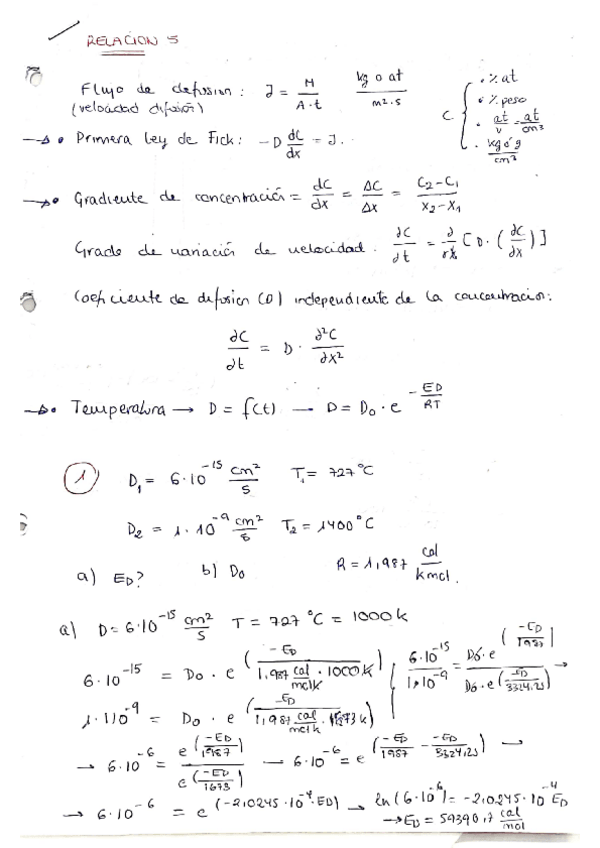 RELACION 5
Flujo de difusion: J = M / A·t   kg o at / m²·s
(velocidad difusión)
C { · % at
· % peso
· at / v = at / cm³
· kg ó g / cm³
→• Primera Ley de Fick: -D dC/dx = J.
→• Gradiente de concentración = dC/dx = ΔC/Δx = C₂-C₁ / X₂-X₁
Grado de variación de velocidad. ∂C/∂t = ∂/∂x [D·(∂C/∂x)]
Coeficiente de difusion (D) independiente de la concentracion:
∂C/∂t = D · ∂²C/∂x²
→• Temperatura → D = f(t) → D = D₀ · e^(-ED/RT)
① D₁ = 6·10^-15 cm²/s   T₁ = 727 °C
D₂ = 1·10^-9 cm²/s   T₂ = 1400 °C
a) ED?   b) D₀   R = 1,987 cal/kmol.
a) D = 6·10^-15 cm²/s   T = 727 °C = 1000 k
6·10^-15 = D₀ · e^(-ED / 1,987 cal/molk · 1000 k)
1·10^-9 = D₀ · e^(-ED / 1,987 cal/molk · 1673 k)
6·10^-15 / 1·10^-9 = D₀·e^(-ED/1987) / D₀·e^(-ED/3324,25) →
→ 6·10^-6 = e^(-ED/1987) / e^(-ED/1673) → 6·10^-6 = e^(-ED/1987 - -ED/3324,25) →
→ 6·10^-6 = e^(-2,0245·10^-4·ED) → ln(6·10^-6) = -2,0245·10^-4 ED
→ ED = 59390,7 cal/mol